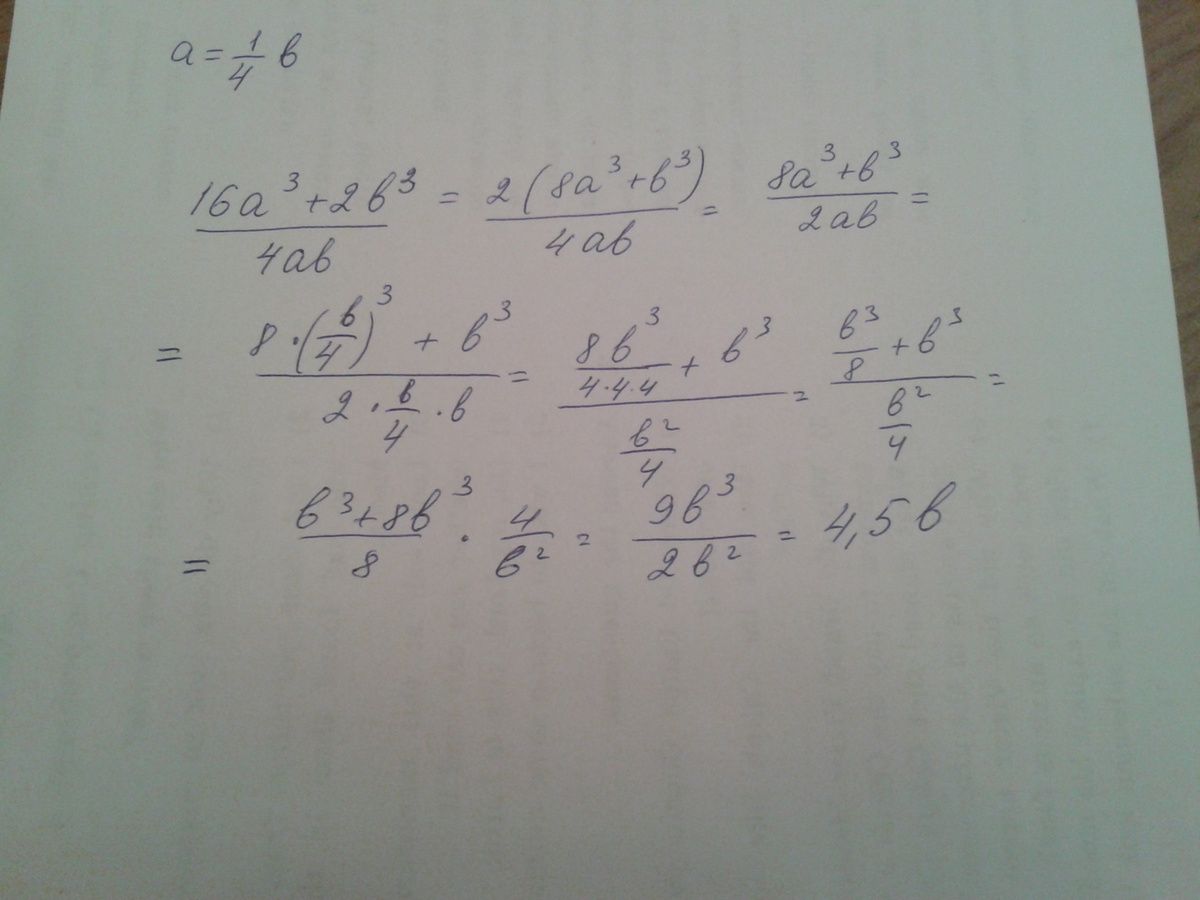 a = 1/4 b
(16a³ + 2b³)/(4ab) = 2(8a³ + b³)/(4ab) = (8a³ + b³)/(2ab) =
= (8 · (b/4)³ + b³)/(2 · b/4 · b) = (8b³/(4·4·4) + b³)/(b²/4) = (b³/8 + b³)/(b²/4) =
= (b³ + 8b³)/8 · 4/b² = 9b³/(2b²) = 4,5 b